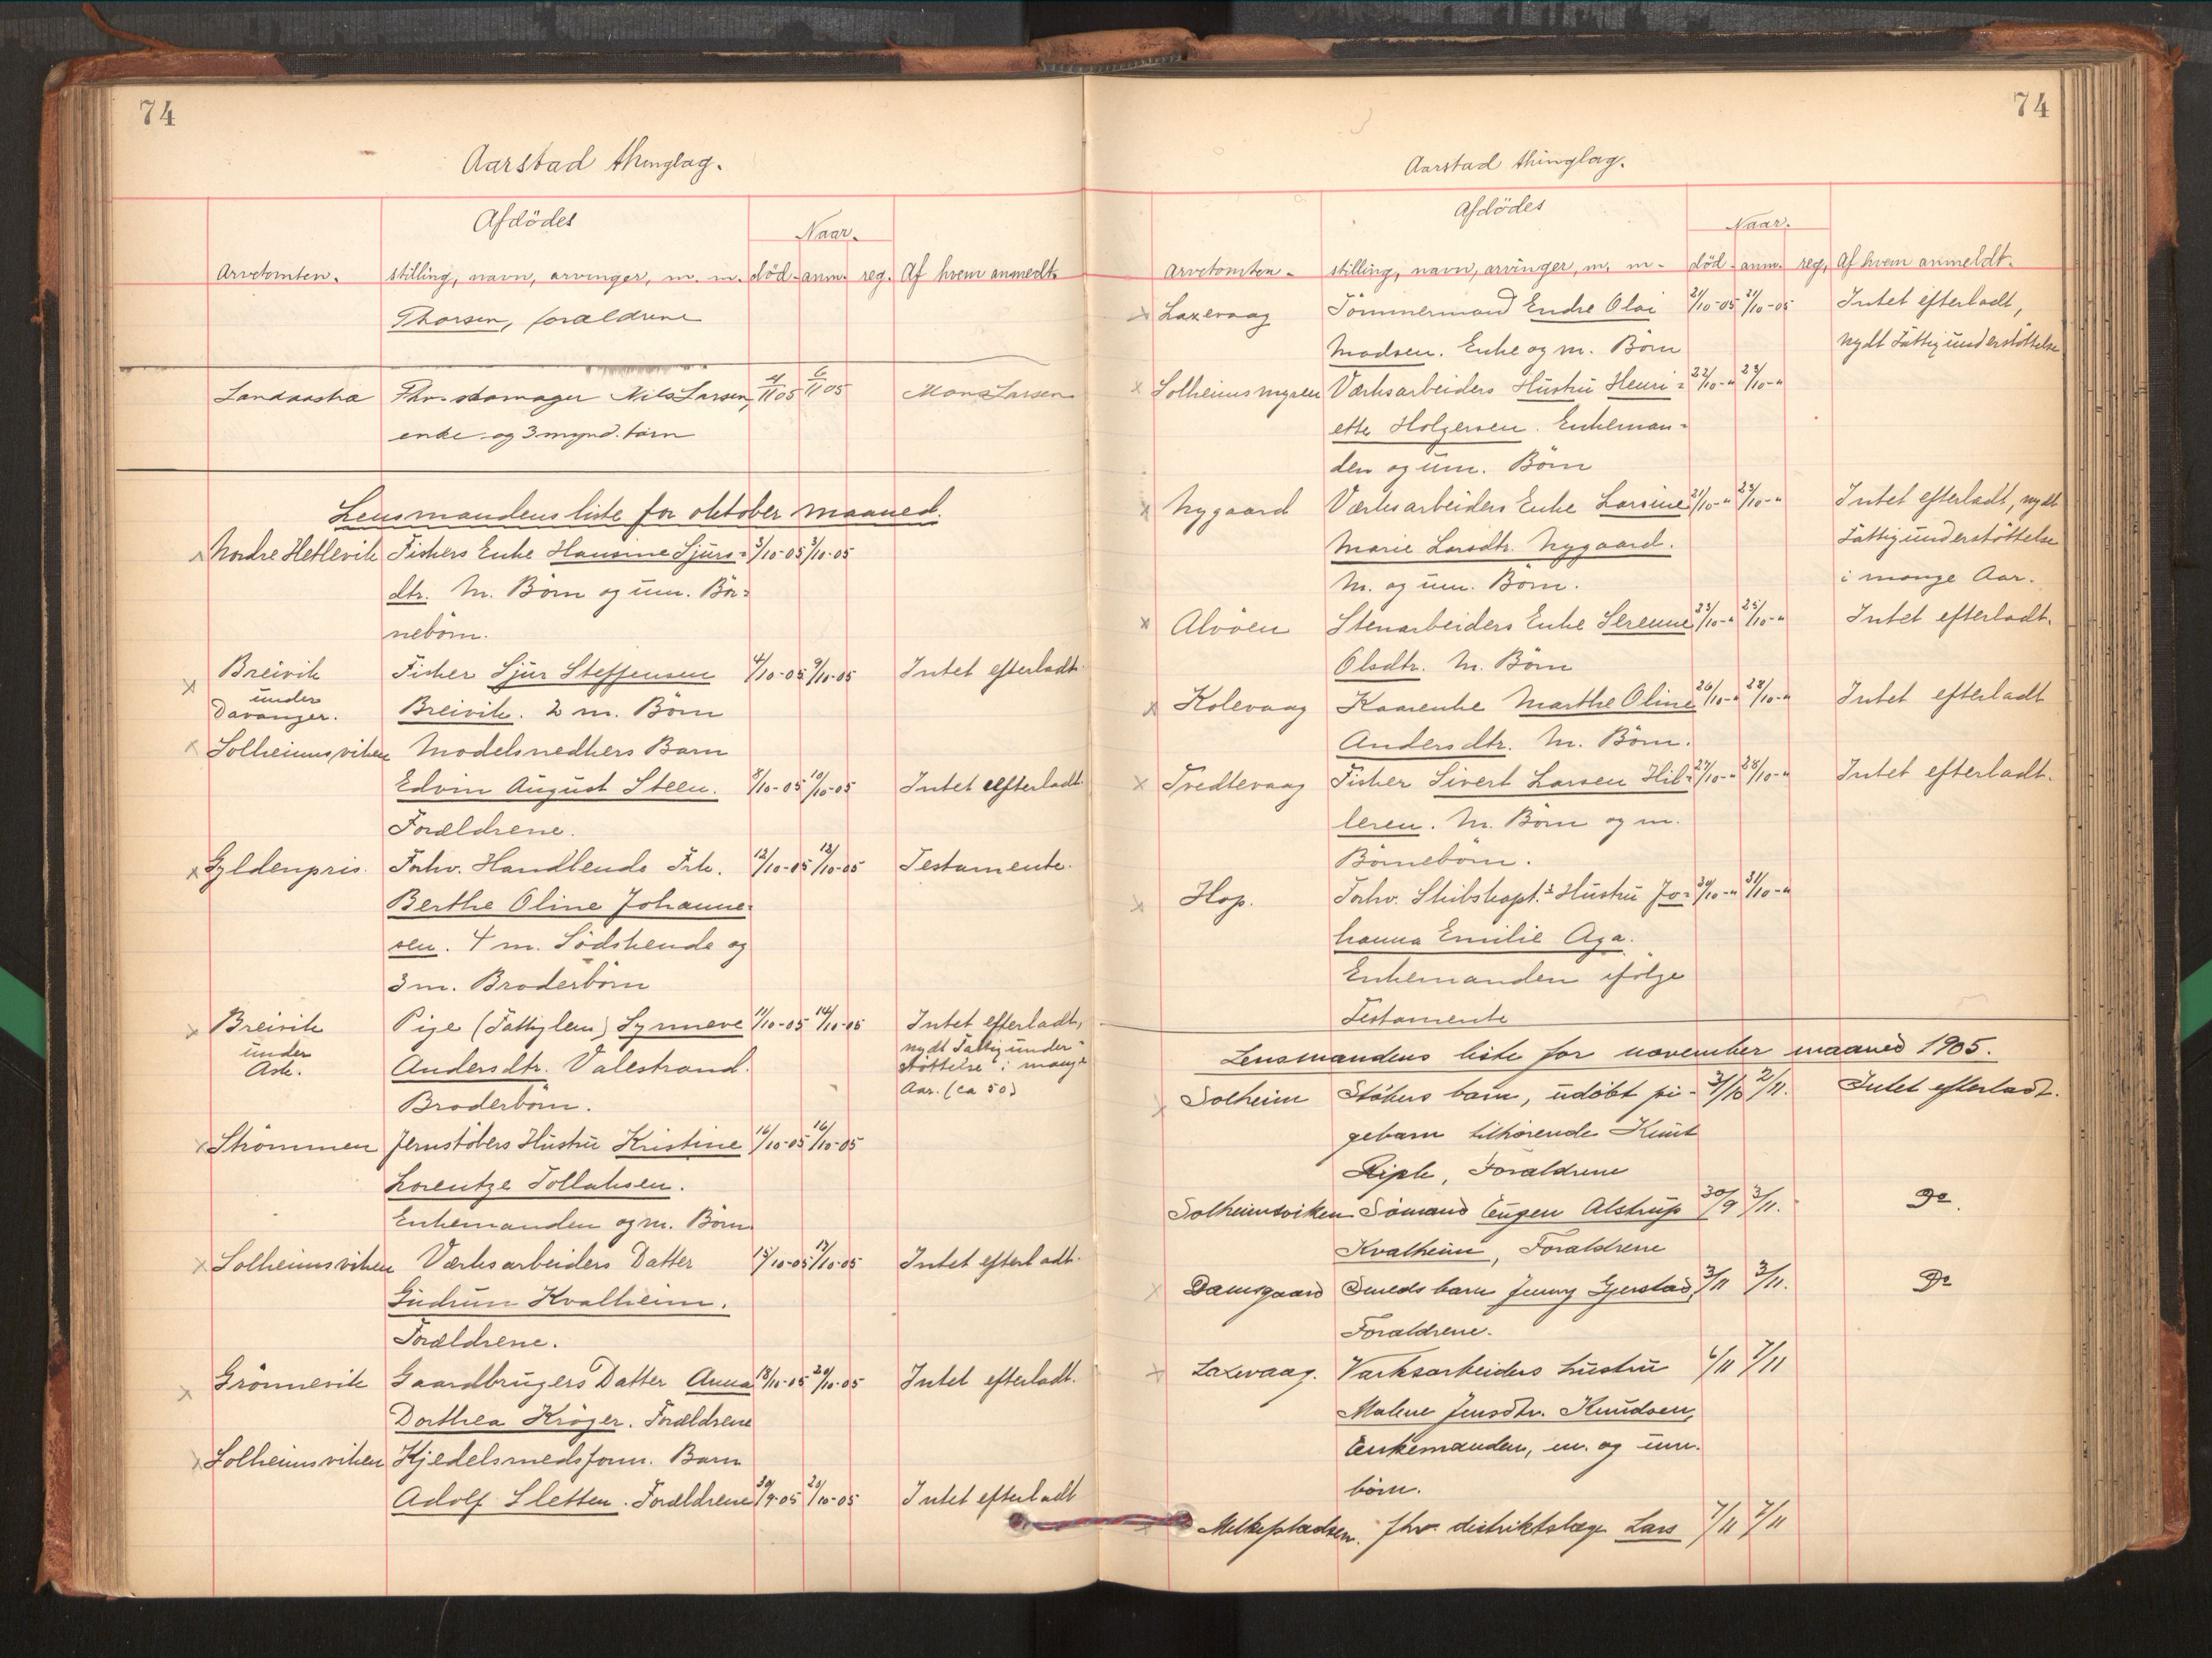 74
Aarstad thinglag.
Afdödes
Naar.
Arvetomten. stilling, navn, arvinger, m. m. död. anm. reg. Af hvem anmeldt.
Thorsen, forældrene
Landaastræ Fhv. skomager Nils Larsen, 4/11 05 6/11 05 Mons Larsen
enke og 3 mynd. børn
Lensmandens liste for oktober maaned.
x Nordre Hetlevik Fiskers Enke Hansine Sjurs= 3/10-05 3/10-05
dtr. M. Börn og um. Bör=
nebörn.
x Breivik Fisker Sjur Steffensen 4/10-05 9/10-05 Intet efterladt.
under
Davanger. Breivik. 2 m. Börn
x Solheimsviken Modelsnedkers Barn
Edvin August Steen. 8/10-05 10/10-05 Intet efterladt.
Forældrene.
x Gyldenpris. Forhv. Handlende Frk. 12/10-05 13/10-05 Testamente.
Berthe Oline Johanne=
sen. 4 m. Södskende og
3 m. Broderbörn
x Breivik Pige (Fattiglem) Synneve 11/10-05 14/10-05 Intet efterladt,
under nydt Fattigunder=
Ask. Andersdtr. Valestrand. støttelse i mange
Broderbörn. Aar. (ca 50)
x Strömmen Jernstöbers Hustru Kristine 16/10-05 16/10-05
Lorentze Tollaksen.
Enkemanden og m. Börn
x Solheimsviken Værksarbeiders Datter 15/10-05 17/10-05 Intet efterladt.
Gudrun Kvalheim.
Forældrene.
x Grönnevik Gaardbrugers Datter Anna 18/10-05 20/10-05 Intet efterladt.
Dorthea Kröger. Forældrene
x Solheimsviken Kjedelsmedsform. Barn
Adolf Sletten. Forældrene 30/9-05 20/10-05 Intet efterladt
74
Aarstad thinglag.
Afdödes
Naar.
Arvetomten. stilling, navn, arvinger, m. m. död. anm. reg. Af hvem anmeldt.
x Laxevaag Tömmermand Endre Olai 21/10-05 21/10-05 Intet efterladt,
Madsen. Enke og m. Börn nydt Fattigunderstöttelse
x Solheimsmyren Værksarbeiders Hustru Henri= 22/10-" 23/10-"
ette Holgersen. Enkeman=
den og um. Börn
x Nygaard Værksarbeiders Enke Larsine 21/10-" 23/10-" Intet efterladt, nydt
Marie Larsdtr. Nygaard. Fattigunderstöttelse
M. og um. Börn. i mange Aar.
x Alvöen Stenarbeiders Enke Serenne 23/10-" 25/10-" Intet efterladt.
Olsdtr. M. Börn
x Kolevaag Kaarenke Marthe Oline 26/10-" 28/10-" Intet efterladt
Andersdtr. M. Börn.
x Tvedtevaag Fisker Sivert Larsen Hil= 27/10-" 28/10-" Intet efterladt.
leren. M. Börn og m.
Börnebörn.
x Hop. Forhv. Skibskapt.s Hustru Jo= 30/10-" 31/10-"
hanna Emilie Aga.
Enkemanden ifölge
Testamente
Lensmandens liste for november maaned 1905.
x Solheim Støbers barn, udöbt pi- 31/10 2/11. Intet efterladt.
gebarn tilhørende Knut
Riple, Forældrene
Solheimsviken Sömand Eugen Alstrup 30/9 3/11. Do.
Kvalheim, Forældrene
x Damsgaard Smeds barn Jenny Gjerstad, 3/11 3/11. Do
Forældrene.
x Laxevaag. Værksarbeiders hustru 6/11 7/11
Malene Jensdtr. Knudsen,
Enkemanden, m. og um.
börn.
x Melkepladsen. fhv. distriktslæge Lars 7/11 7/11